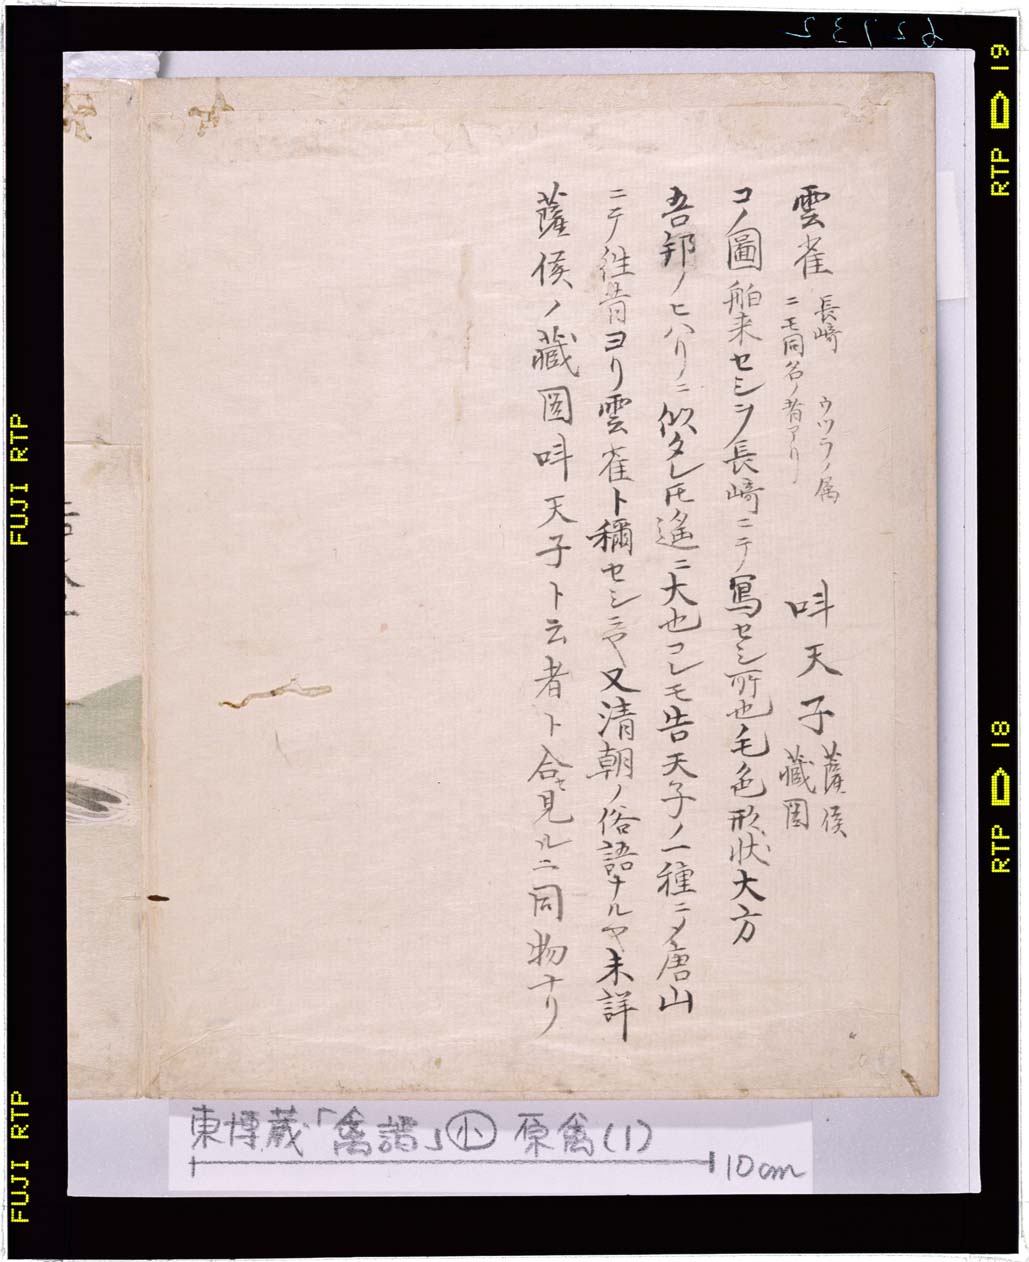 雲雀 長崎 ウツラノ属
ニモ同名ノ者アリ
呌天子 薩侯
藏圖
コノ圖舶来セシヲ長崎ニテ寫セシ所也毛色形状大方
吾邦ノヒハリニ似タレ𪜈遙ニ大也コレモ告天子ノ一種ニノ唐山
ニテ徃昔ヨリ雲雀ト稱セシニヤ又清朝ノ俗語ナルヤ未詳
薩侯ノ藏圖呌天子ト云者ト合セ見ルニ同物ナリ
東博蔵「禽譜」小 原禽(1)
10cm
62932
RTP 19
RTP 18
FUJI RTP
FUJI RTP